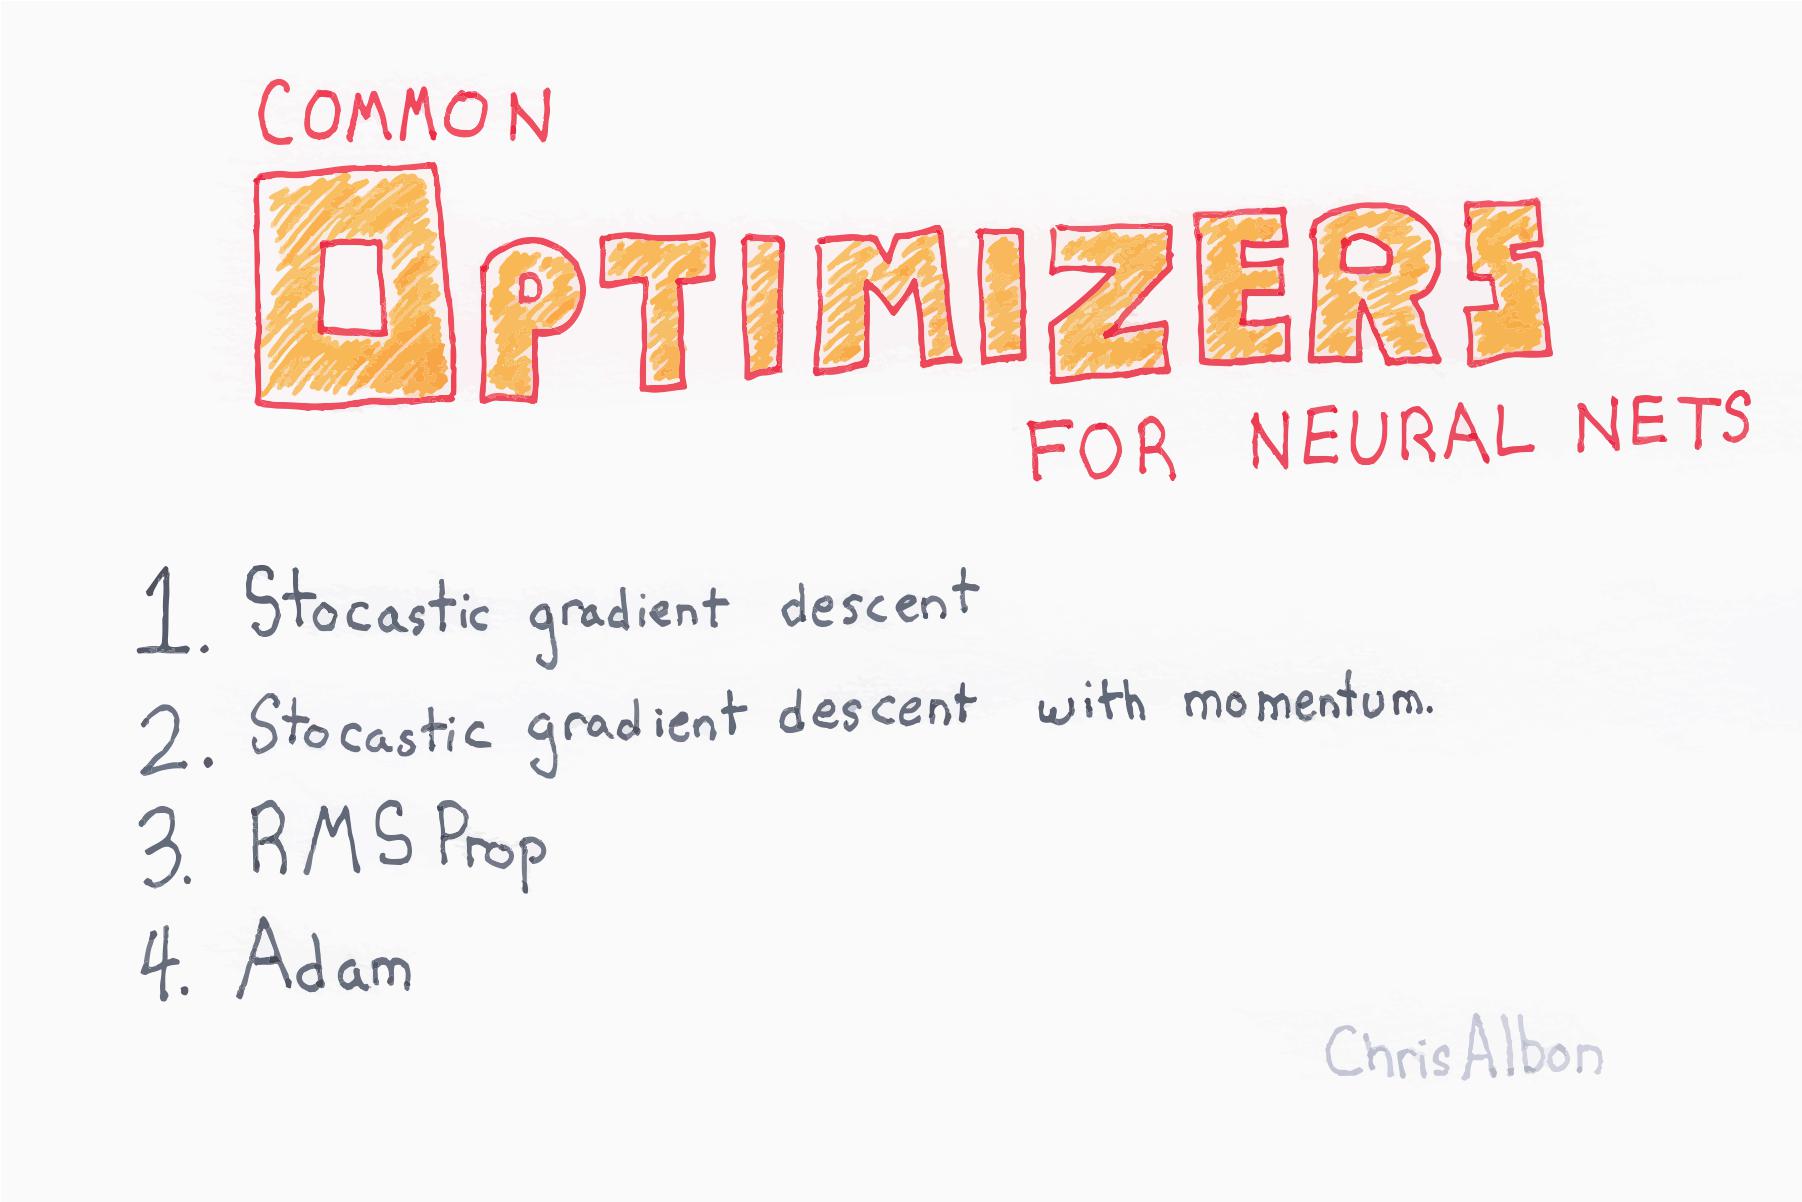 COMMON
OPTIMIZERS
FOR NEURAL NETS
1. Stocastic gradient descent
2. Stocastic gradient descent with momentum.
3. RMS Prop
4. Adam
Chris Albon